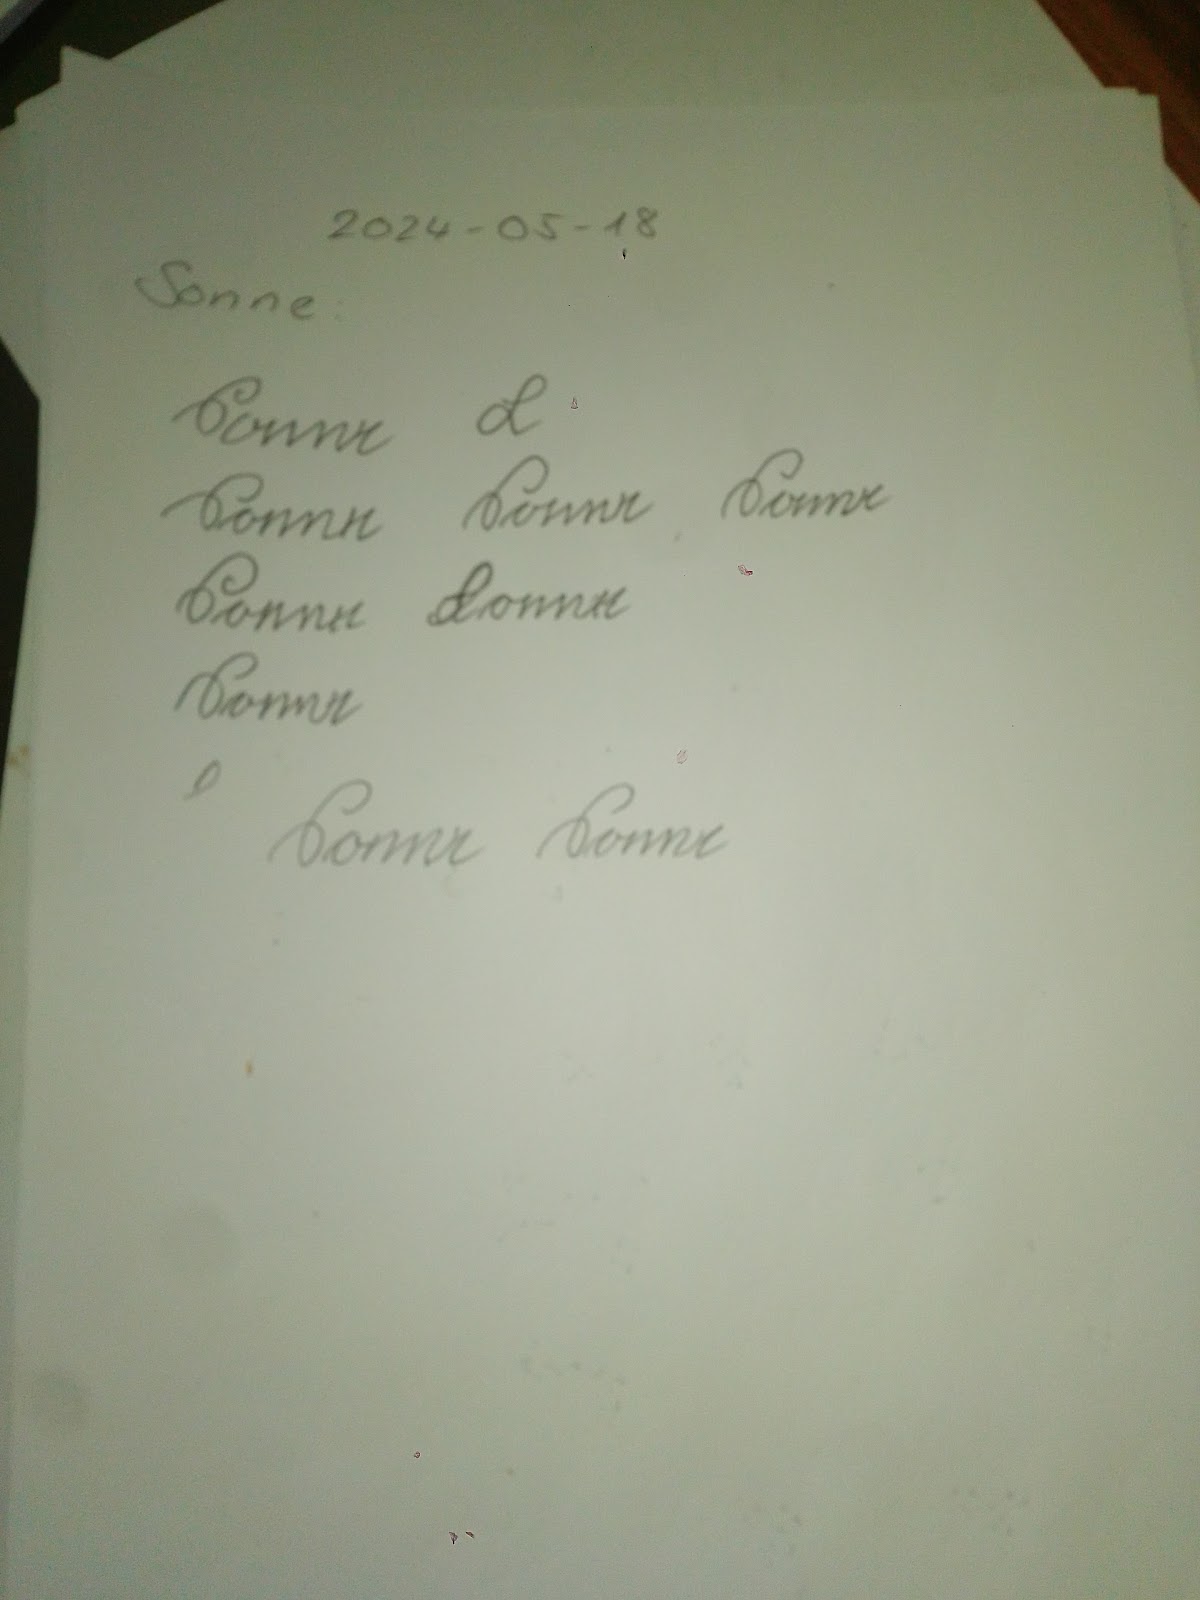 2024-05-18
Sonne:
Sonne S
Sonne Sonne Sonne
Sonne Sonne
Sonne
Sonne Sonne